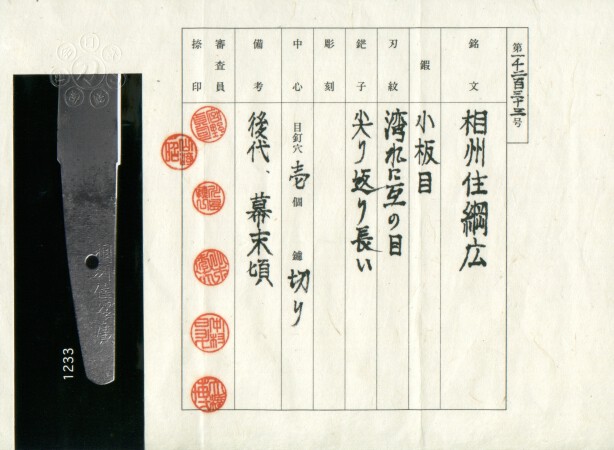 第一千二百三十三号
銘文 相州住綱広
鍜 小板目
刃紋 湾れに互の目
鋩子 尖り返り長い
彫刻
中心 目釘穴 壱個 鑢 切り
備考 後代、幕末頃
審査員捺印
1233